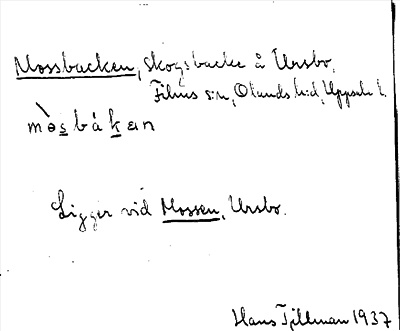 Mossbacken, skogsbacke å Ursbo,
Films s:n, Olands h:d, Uppsala l.
mo̩sbákɛn
Ligger vid Mossen, Ursbo.
Hans Tillman 1937